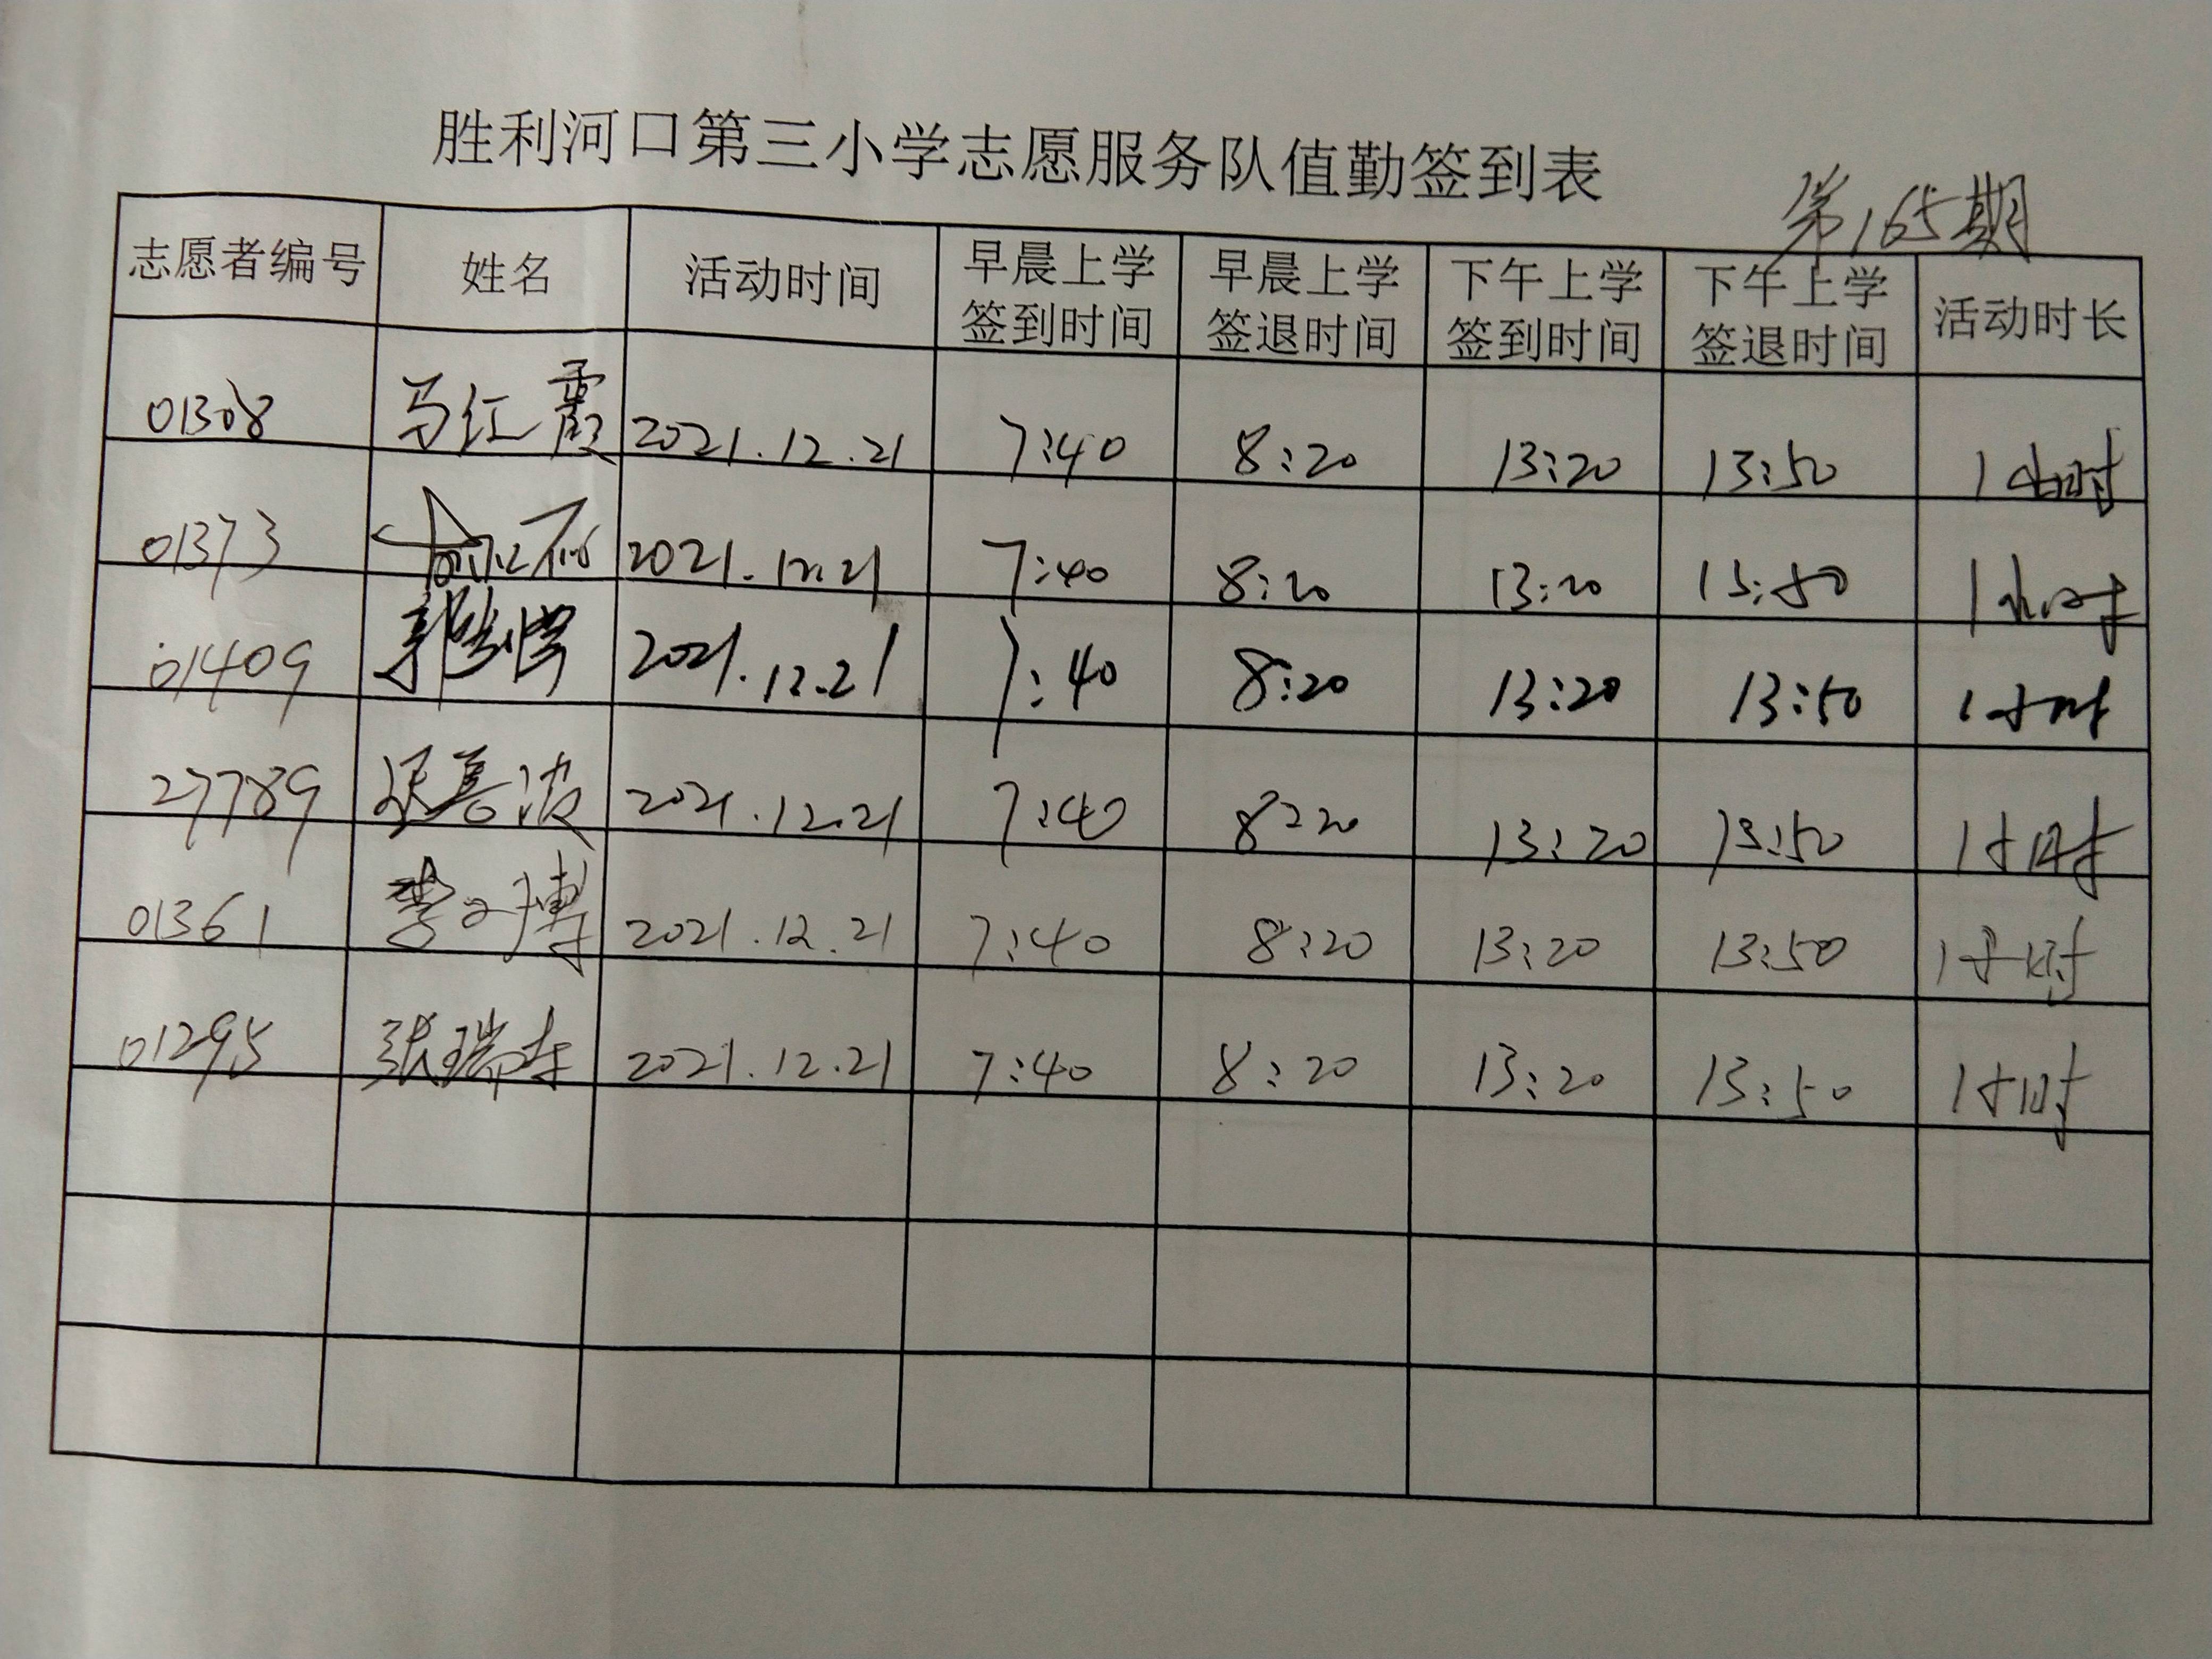 胜利河口第三小学志愿服务队值勤签到表
第165期
志愿者编号 姓名 活动时间 早晨上学签到时间 早晨上学签退时间 下午上学签到时间 下午上学签退时间 活动时长
01308 马红霞 2021.12.21 7:40 8:20 13:20 13:50 1小时
01373 2021.12.21 7:40 8:20 13:20 13:50 1小时
01409 郭 2021.12.21 7:40 8:20 13:20 13:50 1小时
27789 波 2021.12.21 7:40 8:20 13:20 13:50 1小时
01361 李 博 2021.12.21 7:40 8:20 13:20 13:50 1小时
01295 张瑞 2021.12.21 7:40 8:20 13:20 13:50 1小时